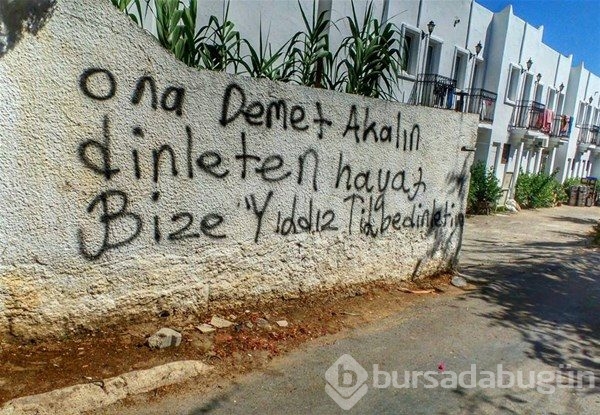 ona Demet Akalın
dinleten hayat
Bize Yıldız Tilbe dinletir
bursadabugün